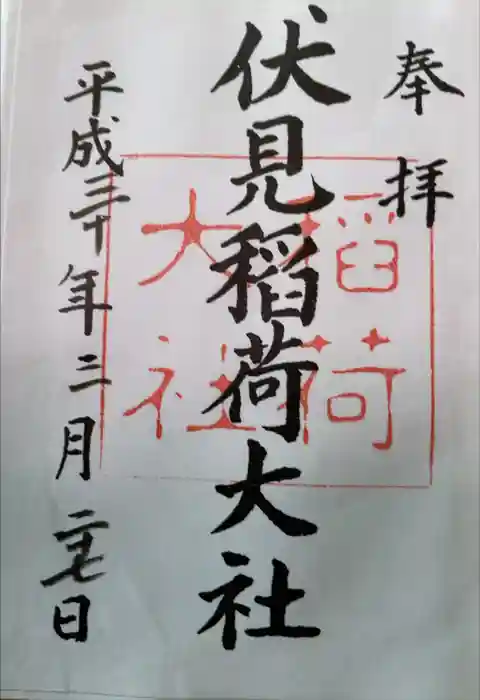 奉拝
伏見稲荷大社
平成三十年三月二十七日
稻荷
大社